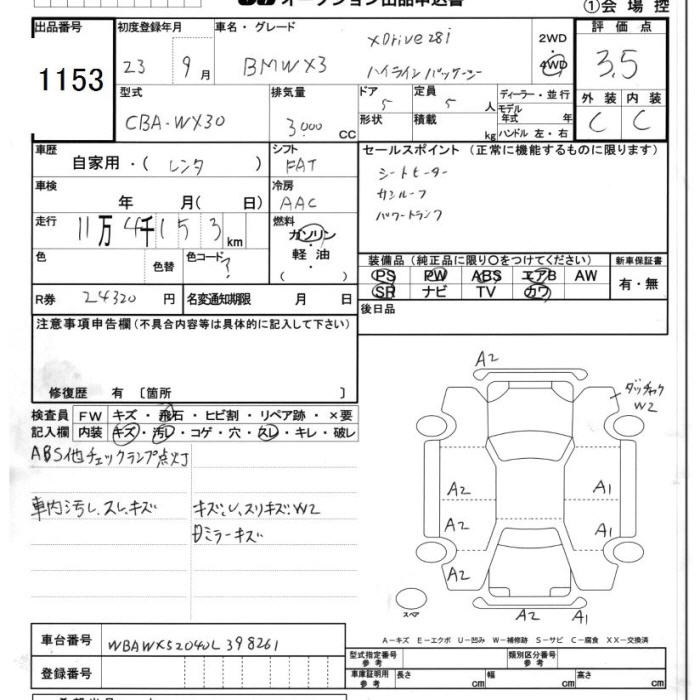 オークション出品申込書
①会場控
出品番号
1153
初度登録年月
23 9月
車名・グレード
BMW X3
xDrive28i
ハイラインパッケージ
2WD
4WD
評価点
3.5
外装 内装
C C
型式
CBA-WX30
排気量
3000 CC
ドア 5
定員 5 人
形状
積載 kg
ディーラー・並行
モデル年式 年
ハンドル 左・右
車歴
自家用・(レンタ)
シフト
FAT
車検
年 月( 日)
冷房
AAC
走行
11万4千153km
燃料
ガソリン
・
軽油
( )
色
色替
色コード ?
R券 24320円
名変通知期限 月 日
セールスポイント (正常に機能するものに限ります)
シートヒーター
サンルーフ
パワートランク
装備品(純正品に限り〇をつけてください)
新車保証書
PS PW ABS エアB AW
SR ナビ TV カワ
有・無
後日品
注意事項申告欄(不具合内容等は具体的に記入して下さい)
修復歴 有〔箇所 〕
検査員記入欄
FW キズ・飛石・ヒビ割・リペア跡・×要
内装 キズ・汚レ・コゲ・穴・スレ・キレ・破レ
ABS他チェックランプ点灯
車内汚レ、スレ、キズ
キズ、U、スリキズW2
ミラーキズ
A2
ダッチャク
W2
A2 A1
A2 A1
A2
A2 A1
スペア
A−キズ E−エクボ U−凹み W−補修跡 S−サビ C−腐食 XX−交換済
車台番号
WBAWX52040L398261
登録番号
型式指定番号 参考
類別区分番号 参考
車庫証明用 参考
長さ cm
幅 cm
高さ cm